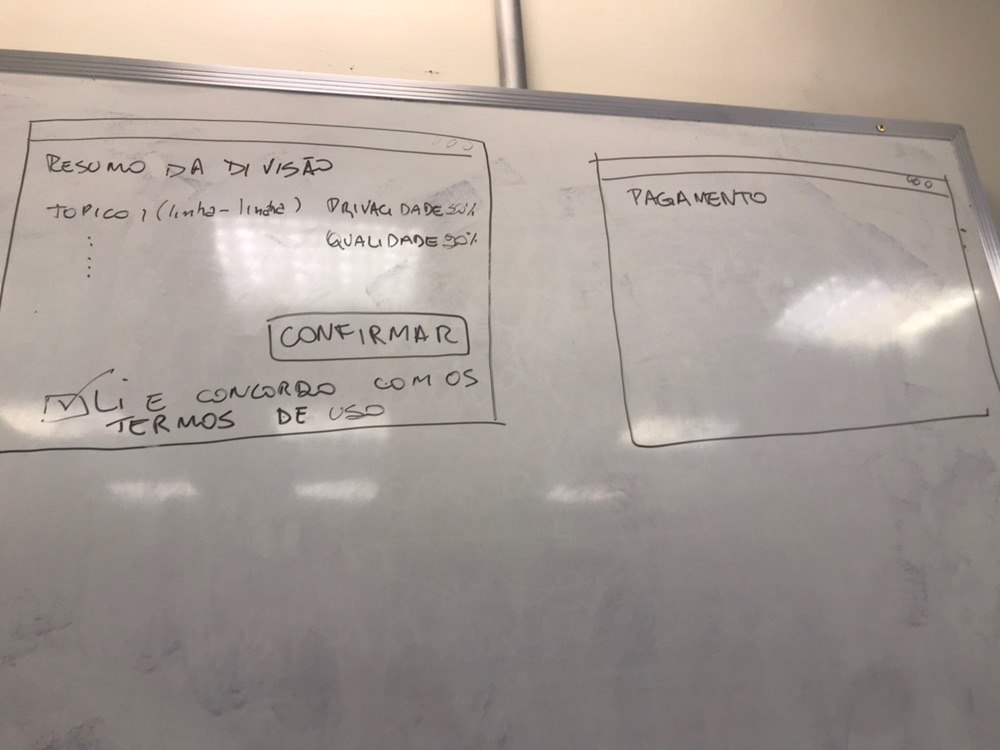 RESUMO DA DIVISÃO
TOPICO 1 (linha-linha) PRIVACIDADE 50%
QUALIDADE 50%
CONFIRMAR
Li E CONCORDO COM OS
TERMOS DE USO
PAGAMENTO